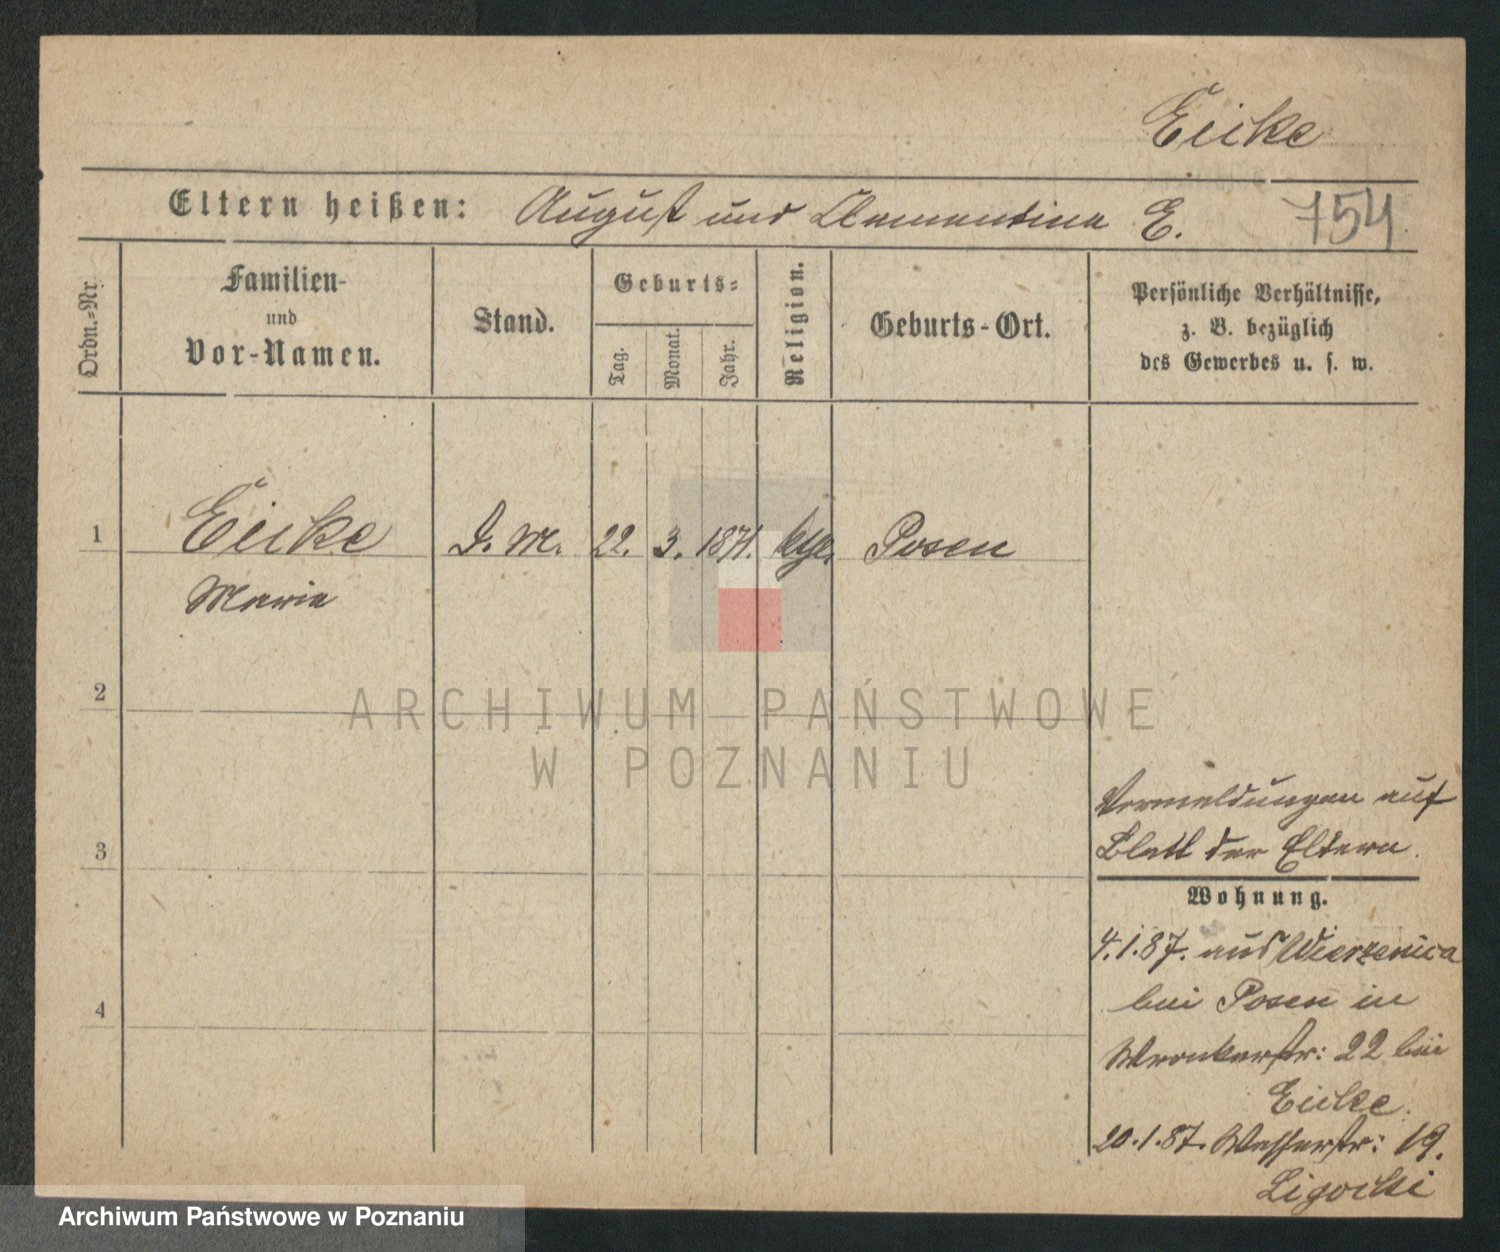 Eicke
Eltern heißen: August und Clementina E. 754
Ordn.-Nr.
Familien-
und
Vor-Namen.
Stand.
Geburts-
Tag.
Monat.
Jahr.
Religion.
Geburts-Ort.
Persönliche Verhältnisse,
z. B. bezüglich
des Gewerbes u. s. w.
1 Eicke D. M. 22. 3. 1871. kth. Posen
Maria
2
ARCHIWUM PAŃSTWOWE
W POZNANIU
3
Vermeldungen auf
Blatt der Eltern.
Wohnung.
4.1.87. aus Wierzenica
bei Posen in
4
Wronkerstr: 22 bei
Eicke.
20.1.87. Wasserstr: 19.
Ligocki
Archiwum Państwowe w Poznaniu